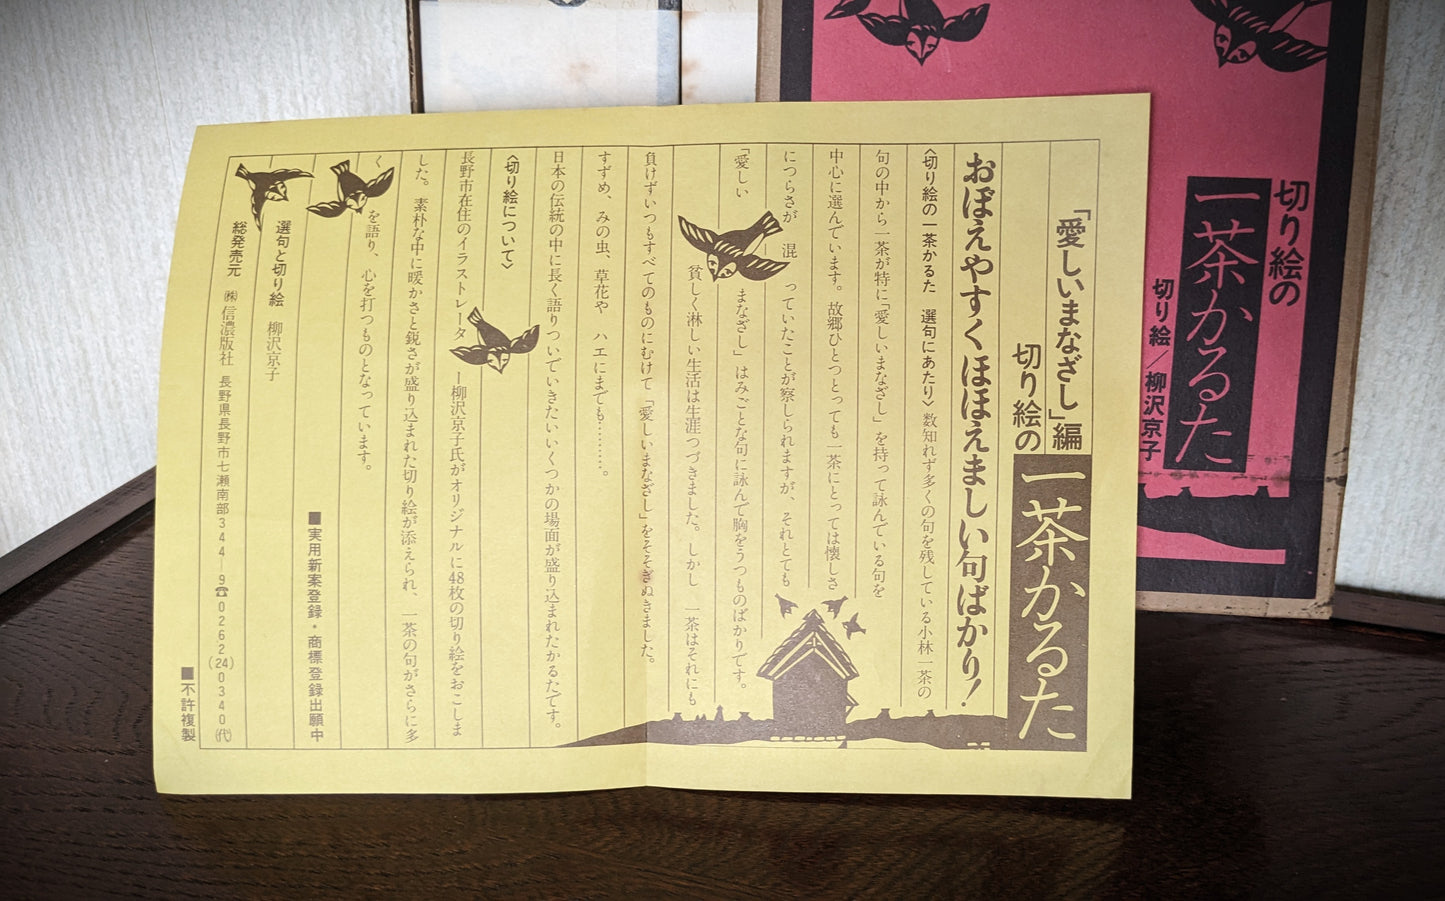 「愛しいまなざし」編
切り絵の
一茶かるた
おぼえやすくほほえましい句ばかり!
〈切り絵の一茶かるた　選句にあたり〉数知れず多くの句を残している小林一茶の
句の中から一茶が特に「愛しいまなざし」を持って詠んでいる句を
中心に選んでいます。故郷ひとつとっても一茶にとっては懐しさ
につらさが　混　っていたことが察しられますが、それとても
「愛しい　まなざし」はみごとな句に詠んで胸をうつものばかりです。
貧しく淋しい生活は生涯つづきました。しかし　一茶はそれにも
負けずいつもすべてのものにむけて「愛しいまなざし」をそそぎぬきました。
すずめ、みの虫、草花や　ハエにまでも………。
日本の伝統の中に長く語りついでいきたいいくつかの場面が盛り込まれたかるたです。
〈切り絵について〉
長野市在住のイラストレーター柳沢京子氏がオリジナルに48枚の切り絵をおこしま
した。素朴な中に暖かさと鋭さが盛り込まれた切り絵が添えられ、一茶の句がさらに多
く　を語り、心を打つものとなっています。
■実用新案登録・商標登録出願中
選句と切り絵　柳沢京子
総発売元　㈱信濃版社　長野県長野市七瀬南部344－9☎0262(24)0340(代)
■不許複製
切り絵の
一茶かるた
切り絵／柳沢京子